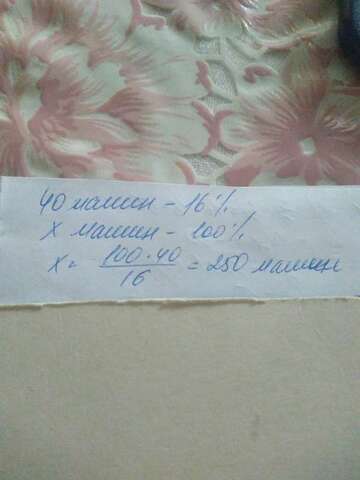 40 машин - 16%
x машин - 100%
x = 100·40/16 = 250 машин